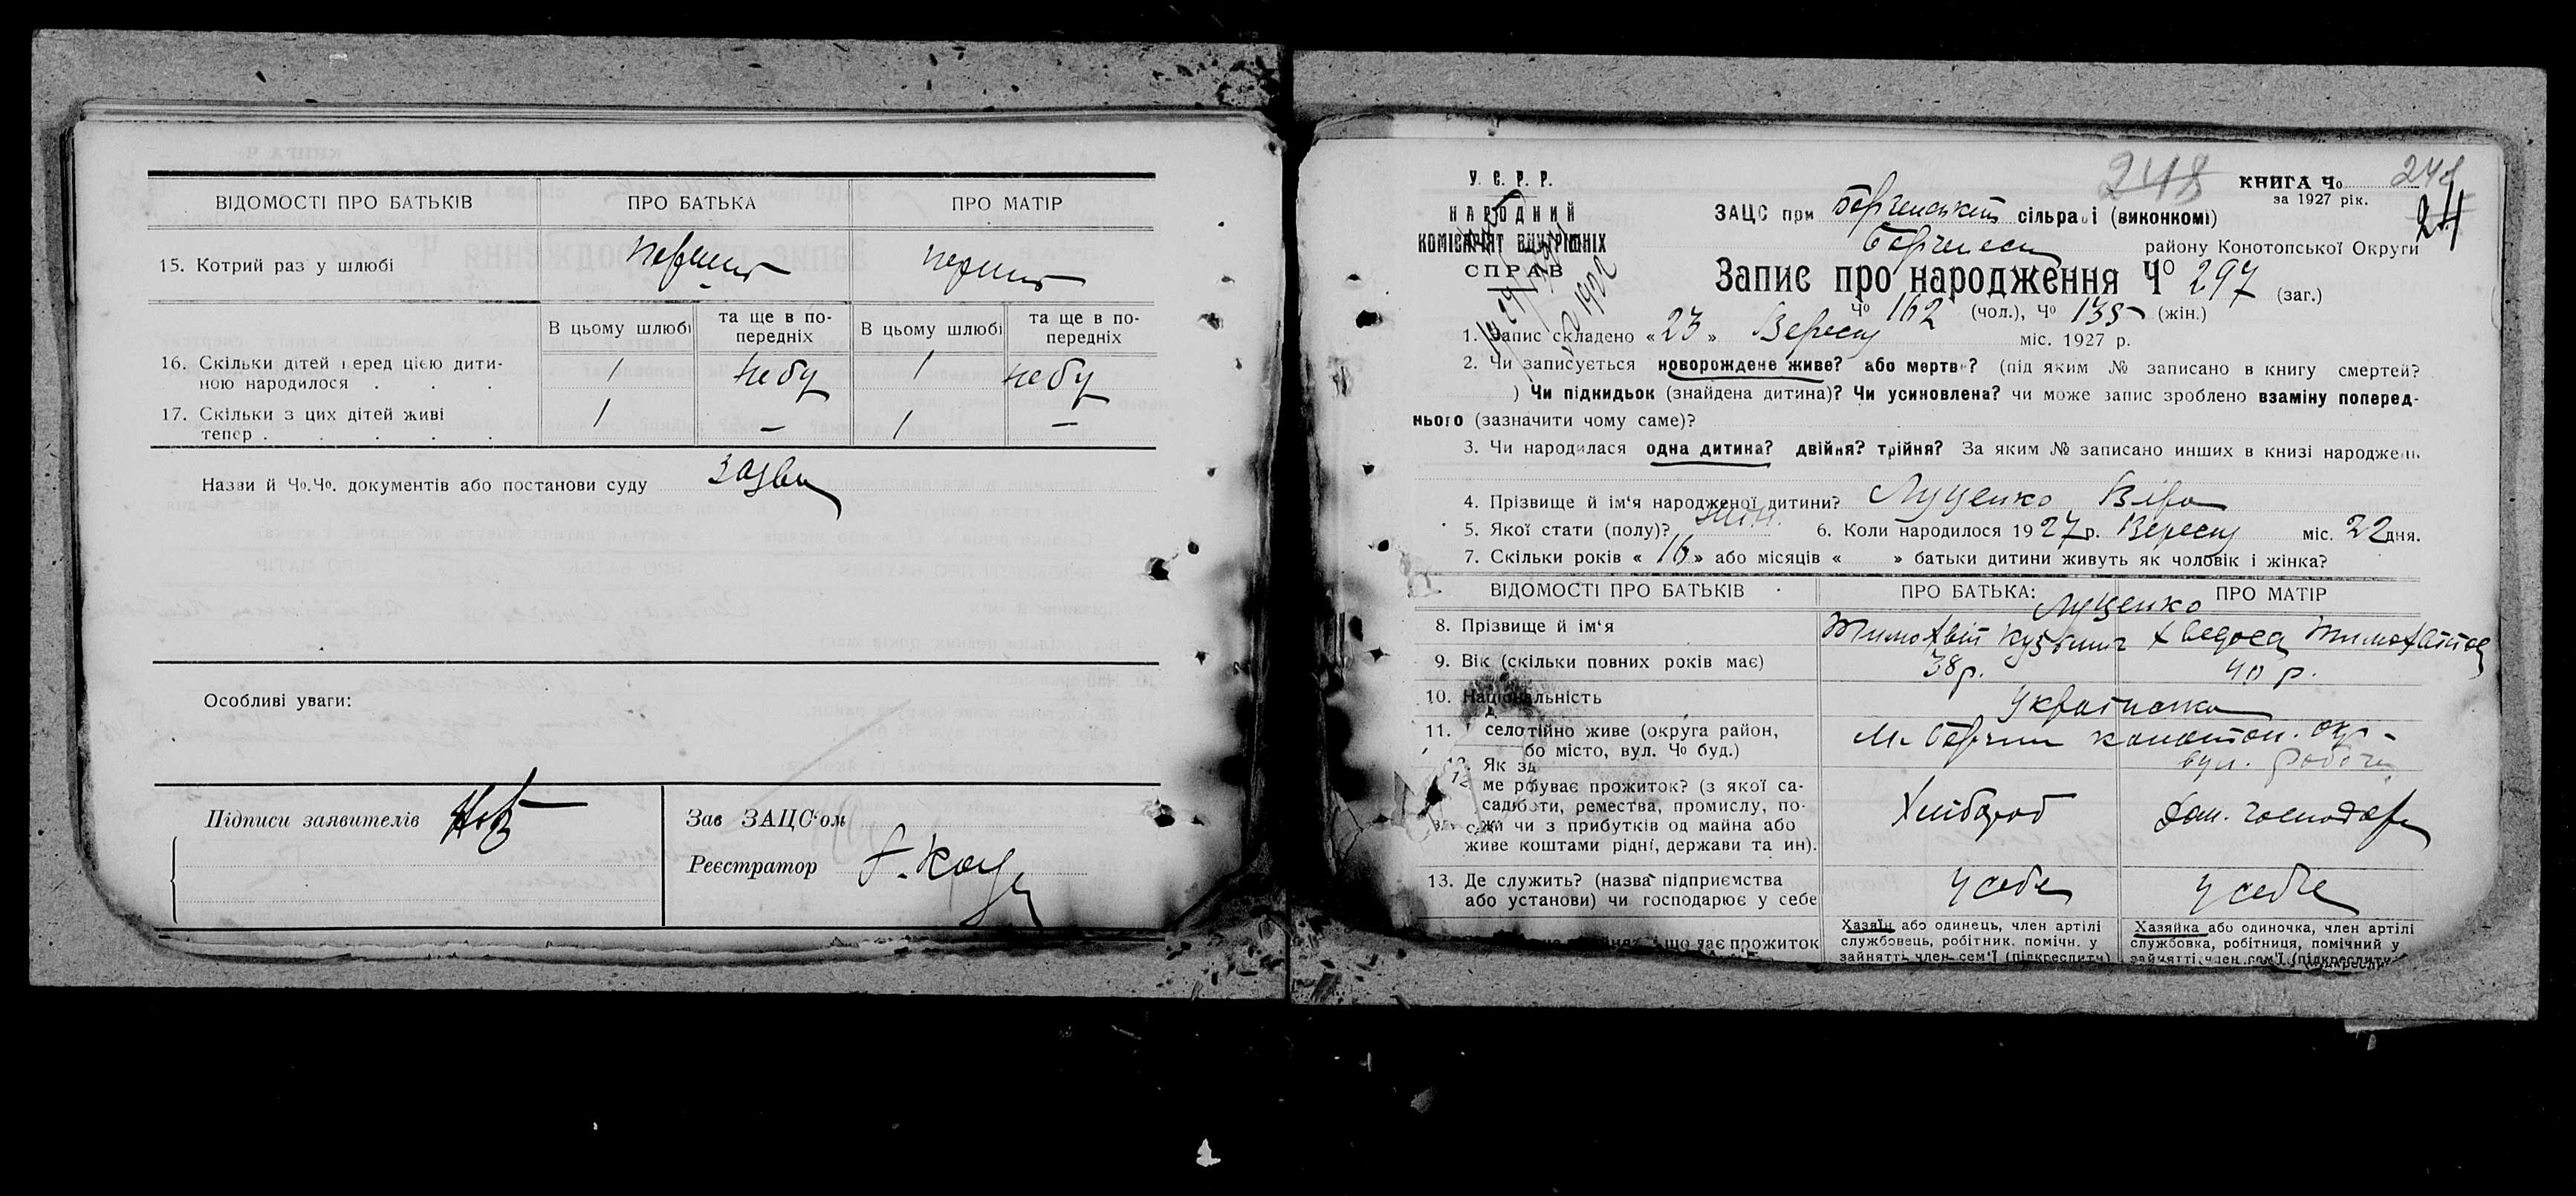 ВІДОМОСТІ ПРО БАТЬКІВ
ПРО БАТЬКА
ПРО МАТІР
15. Котрий раз у шлюбі
перший
перший
В цьому шлюбі
та ще в по-
передніх
В цьому шлюбі
та ще в по-
передніх
16. Скільки дітей перед цією дити-
ною народилося . . .
1
небу
1
небу
17. Скільки з цих дітей живі
тепер . . . . .
1
—
1
—
Назви й Чо.Чо. документів або постанови суду
Особливі уваги:
Підписи заявителів
Зав ЗАЦС'ом
Реєстратор
У. С. Р. Р.
НАРОДНИЙ
КОМІСАРІЯТ ВНУТРІШНІХ
СПРАВ
248
КНИГА Чо 248
за 1927 рік.
24
ЗАЦС при Борзенській сільраді (виконкомі)
Борзенськ району Конотопської Округи
Запис про народження Чо 297 (заг.)
Чо 162 (чол.), Чо 135 (жін.)
1. Запис складено « 23 » Вересня міс. 1927 р.
2. Чи записується новорождене живе? або мертве? (під яким № записано в книгу смертей?
) Чи підкидьок (знайдена дитина)? Чи усиновлена? чи може запис зроблено взаміну поперед-
нього (зазначити чому саме)?
3. Чи народилася одна дитина? двійня? трійня? За яким № записано инших в книзі народжень
4. Прізвище й ім'я народженої дитини? Луценко Віра
5. Якої стати (полу)? жін. 6. Коли народилося 1927 р. Вересня міс. 22 дня.
7. Скільки років « 16 » або місяців « » батьки дитини живуть як чоловік і жінка?
ВІДОМОСТІ ПРО БАТЬКІВ
ПРО БАТЬКА:
ПРО МАТІР
Луценко
8. Прізвище й ім'я
Тимохвій Кузьмич
Хведося Тимохвіївна
9. Вік (скільки повних років має)
38 р.
40 р.
10. Національність
Українська
11. селотійно живе (округа район,
бо місто, вул. Чо буд.)
М. Борзна Конотоп. окр.
вул. Робоча
Як зд
ме робуває прожиток? (з якої са-
боти, ремества, промислу, по-
жи чи з прибутків од майна або
живе коштами рідні, держави та ин).
Хлібороб
Дом. господар
13. Де служить? (назва підприємства
або установи) чи господарює у себе
У себе
У себе
що дає прожиток
Хазяїн або одинець, член артілі
службовець, робітник, помічн. у
зайнятті член сем'ї (підкреслити)
Хазяйка або одиночка, член артілі
службовка, робітниця, помічний у
зайнятті член сем'ї (підкреслити